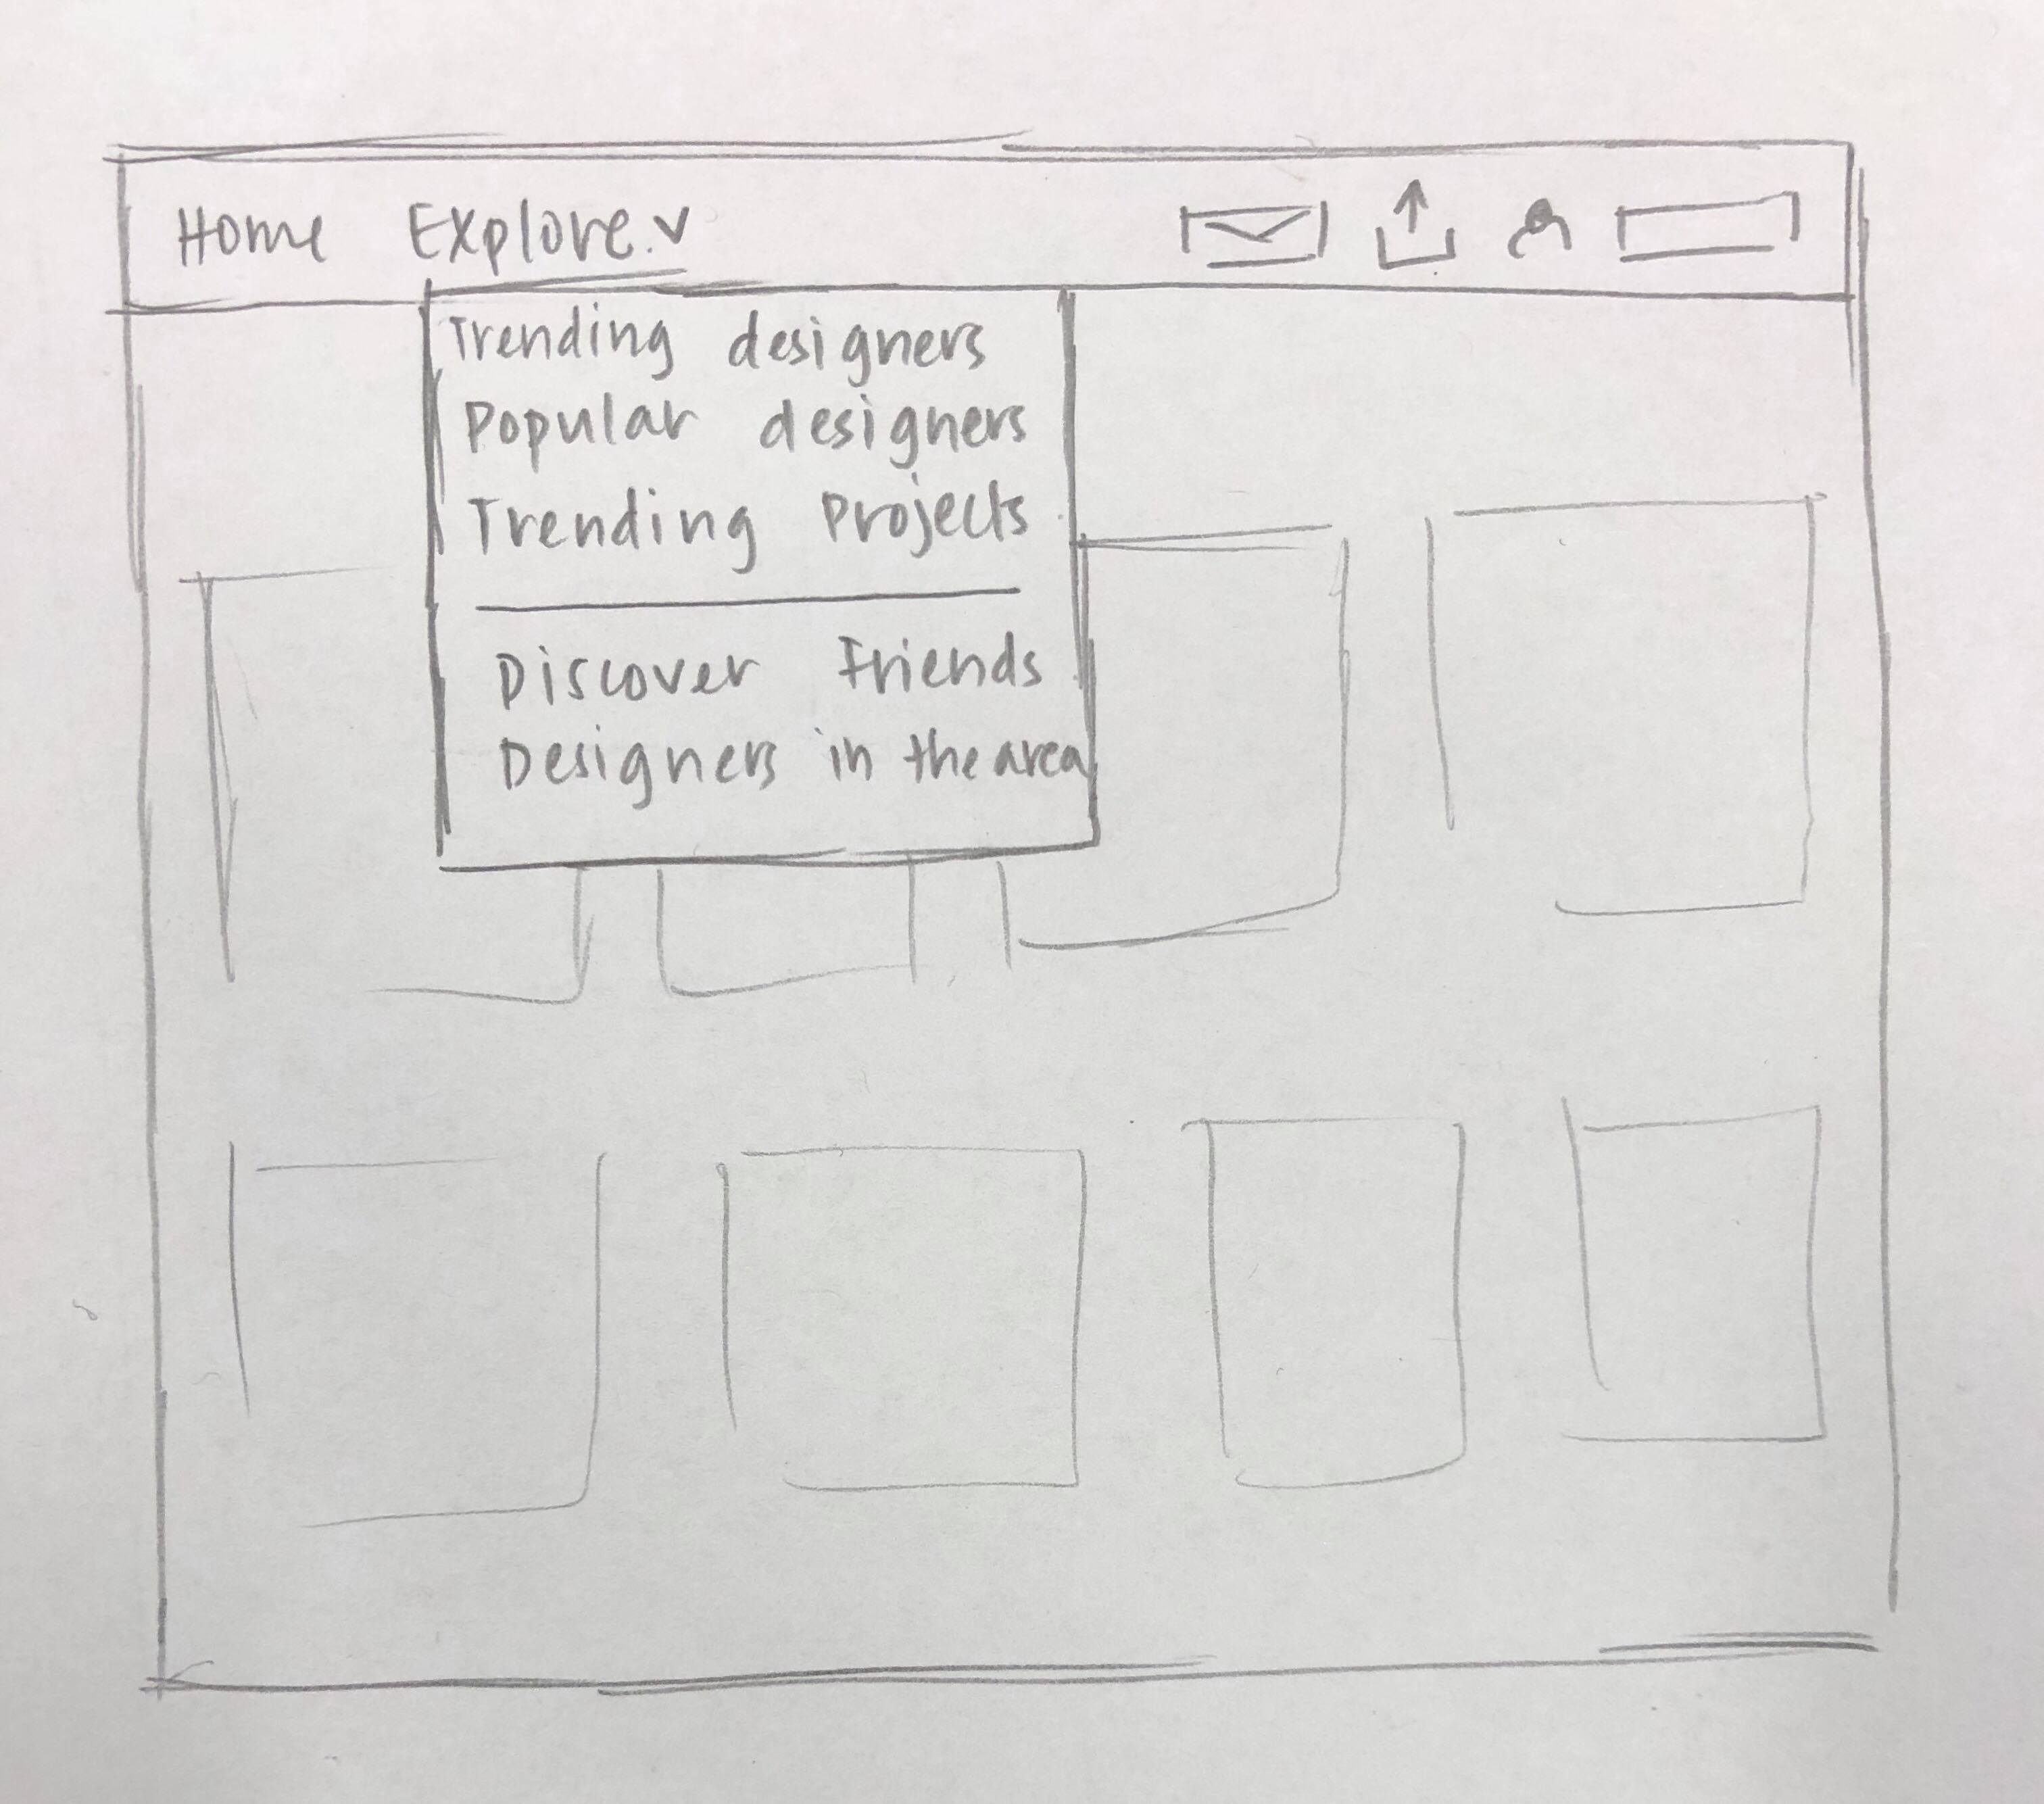 Home Explore
Trending designers
Popular designers
Trending Projects
Discover Friends
Designers in the area